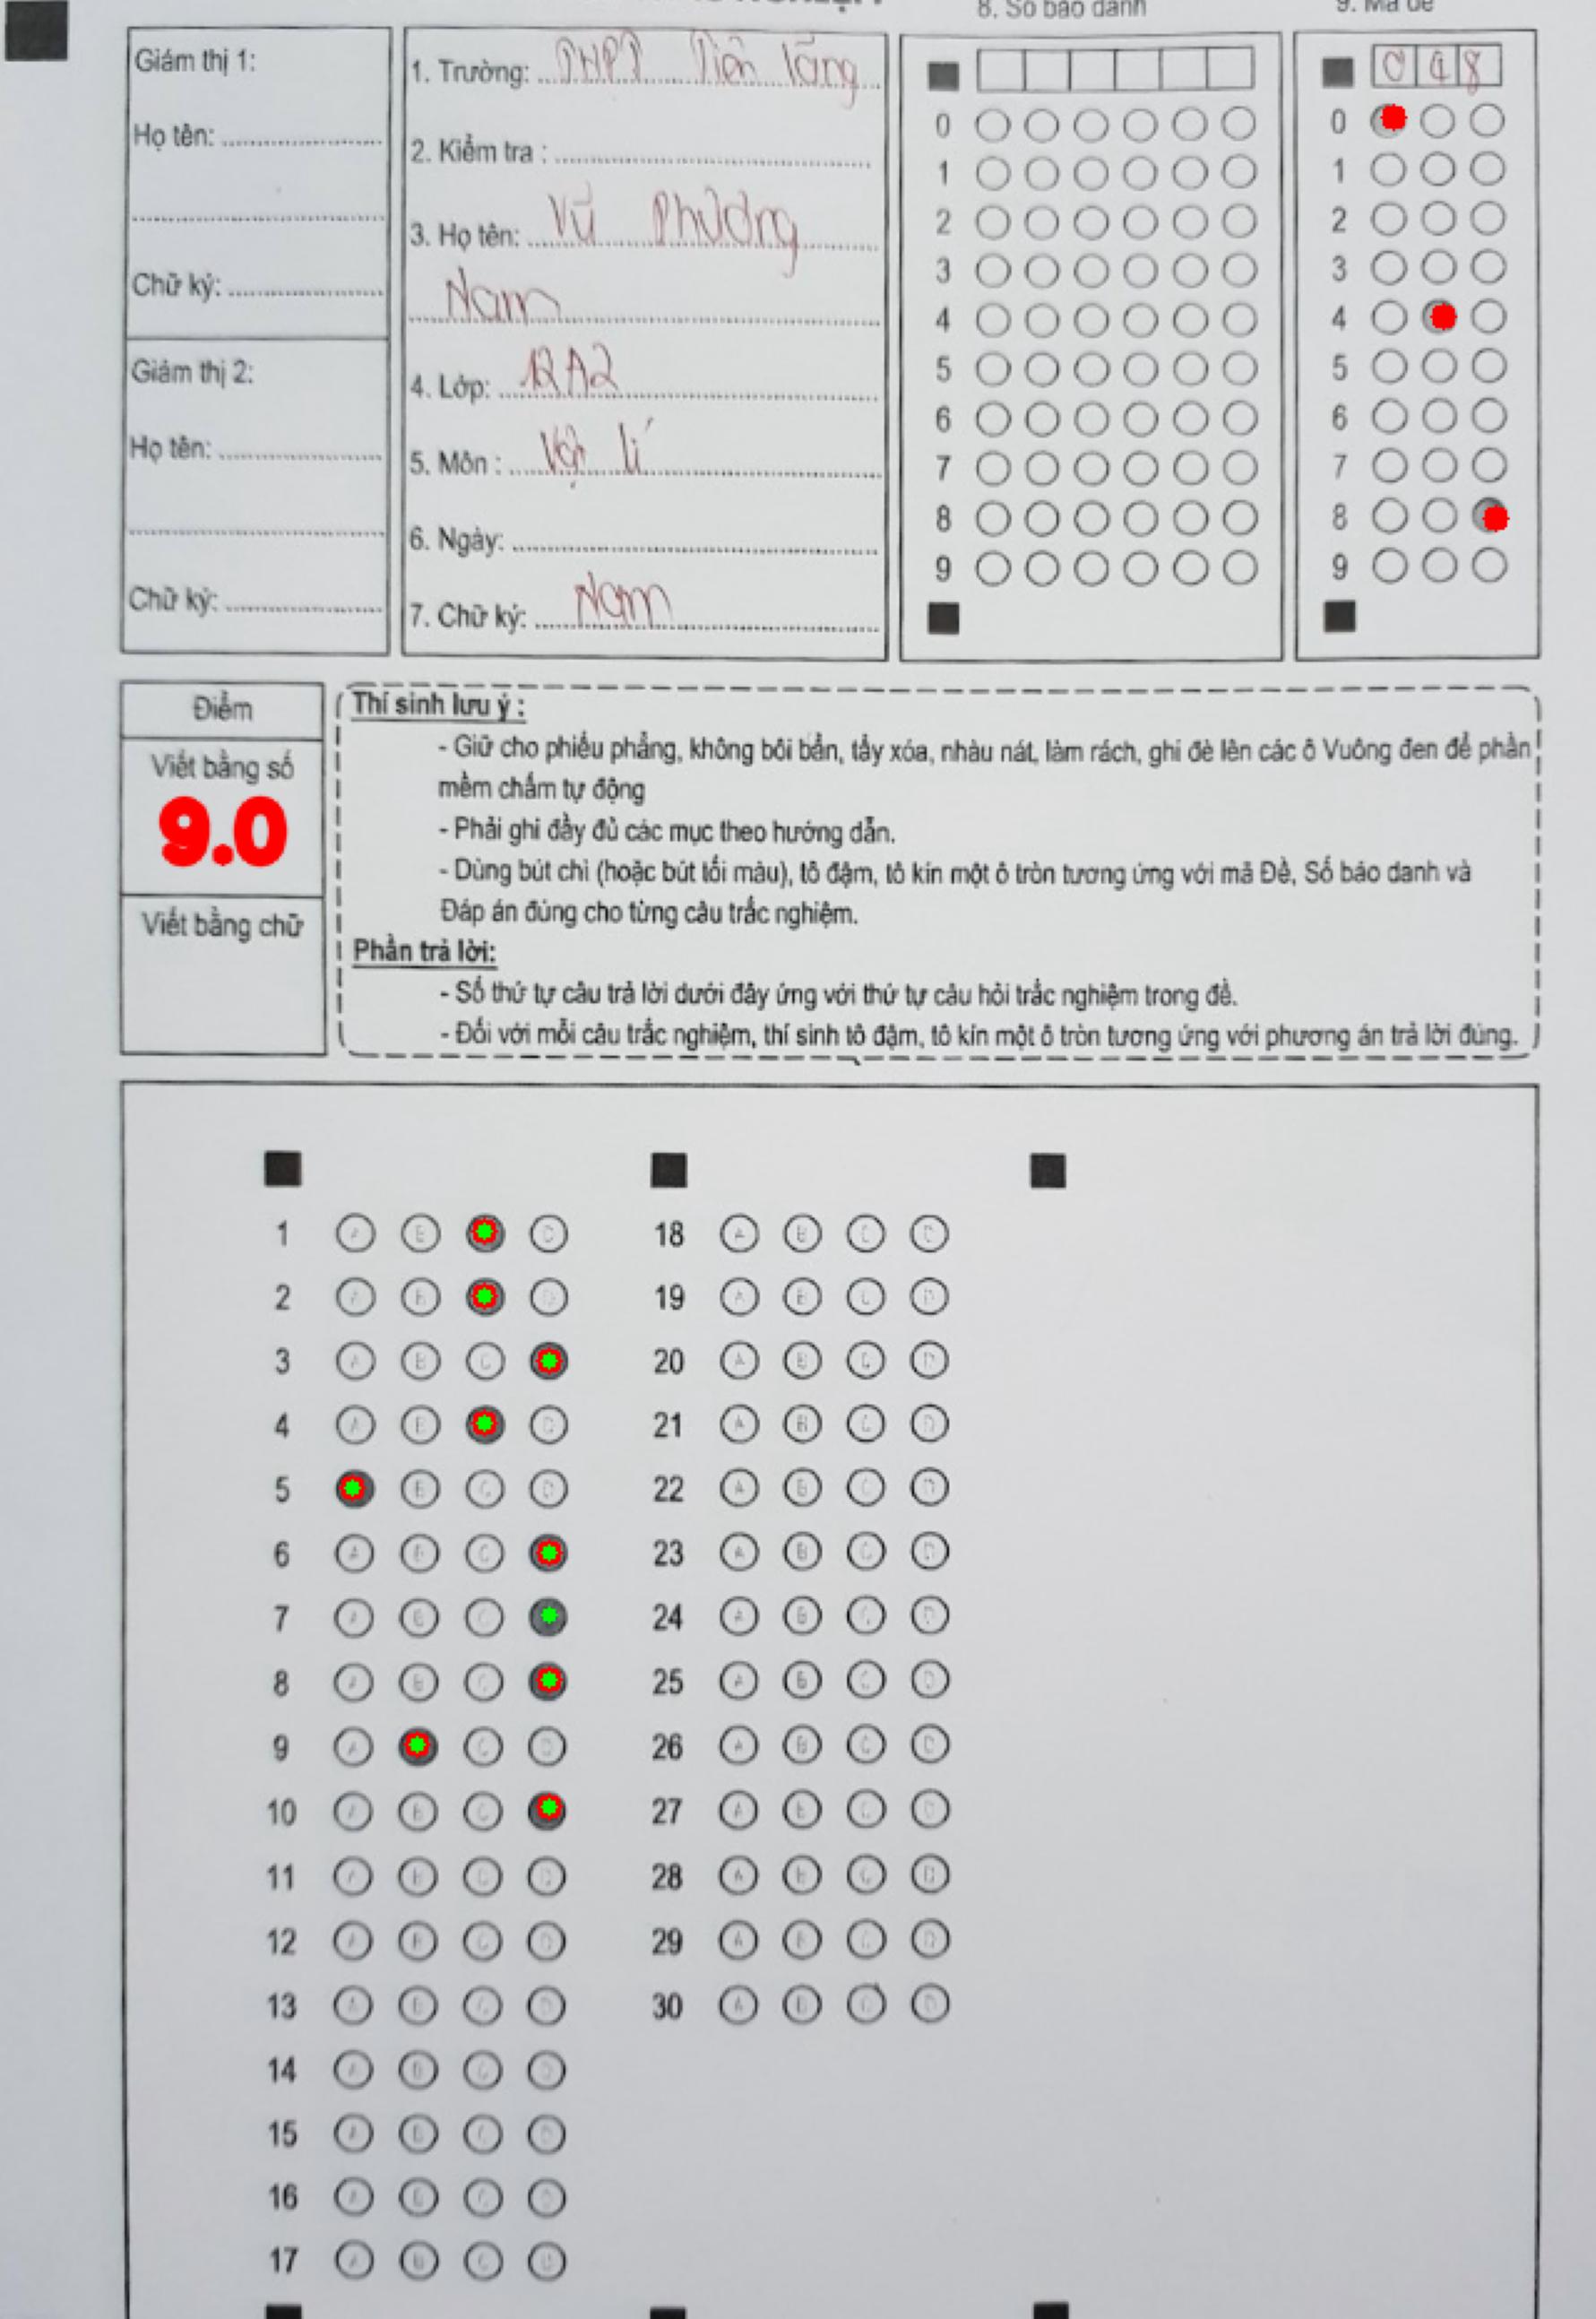 8. Số báo danh
9. Mã đề
Giám thị 1:
Họ tên:
Chữ ký:
Giám thị 2:
Họ tên:
Chữ ký:
1. Trường: THPT Tiên Lãng
2. Kiểm tra :
3. Họ tên: Vũ Phương
Nam
4. Lớp: 12A2
5. Môn : Vật lí
6. Ngày:
7. Chữ ký: Nam
0
1
2
3
4
5
6
7
8
9
0 4 8
0
1
2
3
4
5
6
7
8
9
Điểm
Viết bằng số
9.0
Viết bằng chữ
Thí sinh lưu ý :
- Giữ cho phiếu phẳng, không bôi bẩn, tẩy xóa, nhàu nát, làm rách, ghi đè lên các ô Vuông đen để phần
mềm chấm tự động
- Phải ghi đầy đủ các mục theo hướng dẫn.
- Dùng bút chì (hoặc bút tối màu), tô đậm, tô kín một ô tròn tương ứng với mã Đề, Số báo danh và
Đáp án đúng cho từng câu trắc nghiệm.
Phần trả lời:
- Số thứ tự câu trả lời dưới đây ứng với thứ tự câu hỏi trắc nghiệm trong đề.
- Đối với mỗi câu trắc nghiệm, thí sinh tô đậm, tô kín một ô tròn tương ứng với phương án trả lời đúng.
1 A B D
2 A B D
3 A B C
4 A B D
5 B C D
6 A B C
7 A B C
8 A B C
9 A C D
10 A B C
11 A B C D
12 A B C D
13 A B C D
14 A B C D
15 A B C D
16 A B C D
17 A B C D
18 A B C D
19 A B C D
20 A B C D
21 A B C D
22 A B C D
23 A B C D
24 A B C D
25 A B C D
26 A B C D
27 A B C D
28 A B C D
29 A B C D
30 A B C D